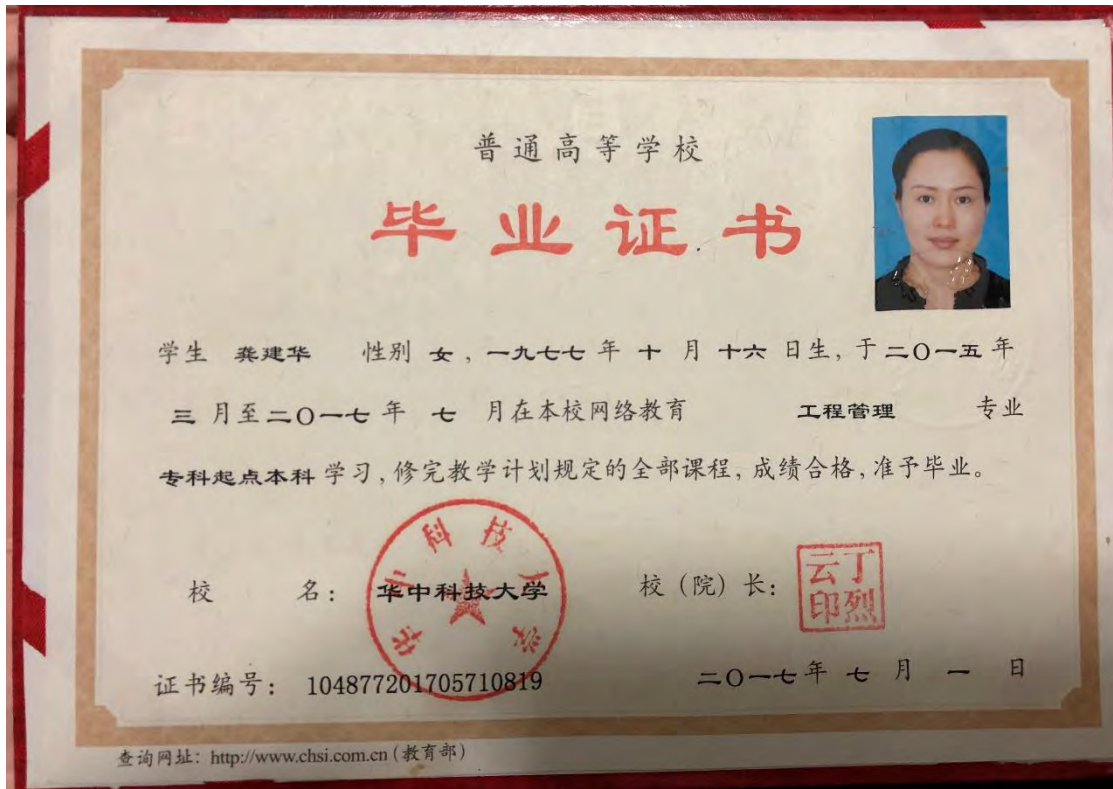 普通高等学校
毕业证书
学生 龚建华 性别 女，一九七七 年 十 月 十六 日生，于 二〇一五 年
三 月至 二〇一七 年 七 月在本校网络教育 工程管理 专业
专科起点本科 学习，修完教学计划规定的全部课程，成绩合格，准予毕业。
校 名： 华中科技大学 校（院）长： 丁烈云印
华中科技大学
证书编号： 104877201705710819 二〇一七 年 七 月 一 日
查询网址：http://www.chsi.com.cn（教育部）